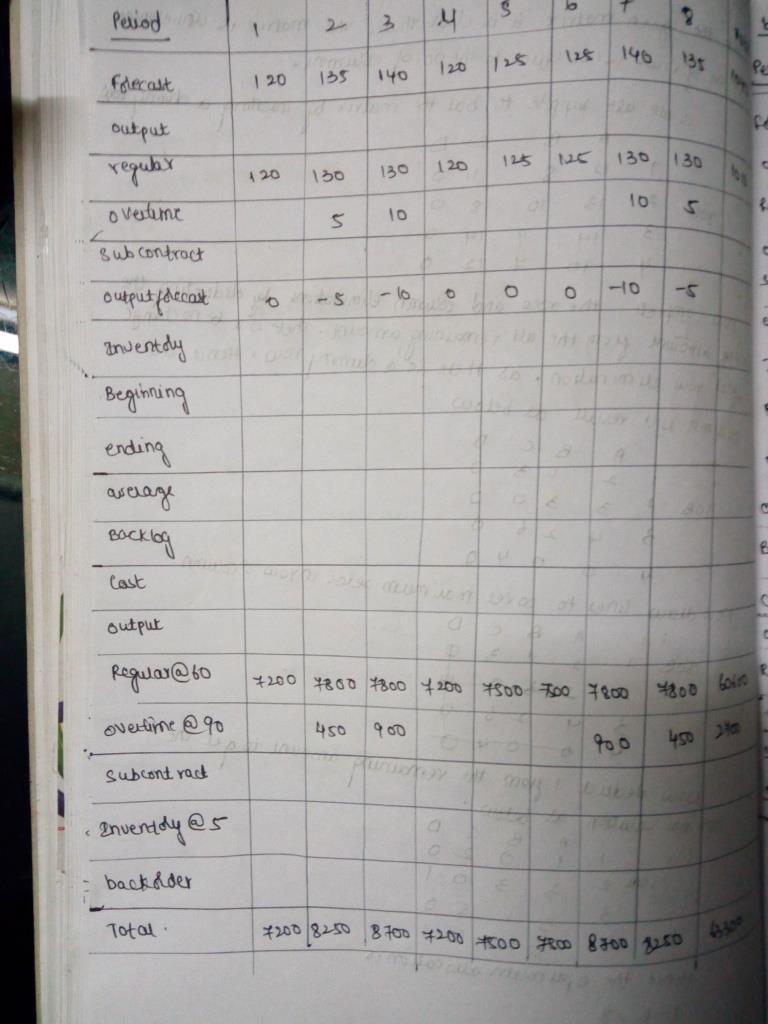 Period 1 2 3 4 5 6 7 8
Forecast 120 135 140 120 125 125 140 135
output
regular 120 130 130 120 125 125 130 130
overtime 5 10 10 5
Subcontract
output forecast 0 -5 -10 0 0 0 -10 -5
Inventory
Beginning
ending
average
Backlog
Cost
output
Regular@60 7200 7800 7800 7200 7500 7500 7800 7800 60600
overtime@90 450 900 900 450 2700
Subcontract
Inventory@5
backorder
Total. 7200 8250 8700 7200 7500 7500 8700 8250 63300